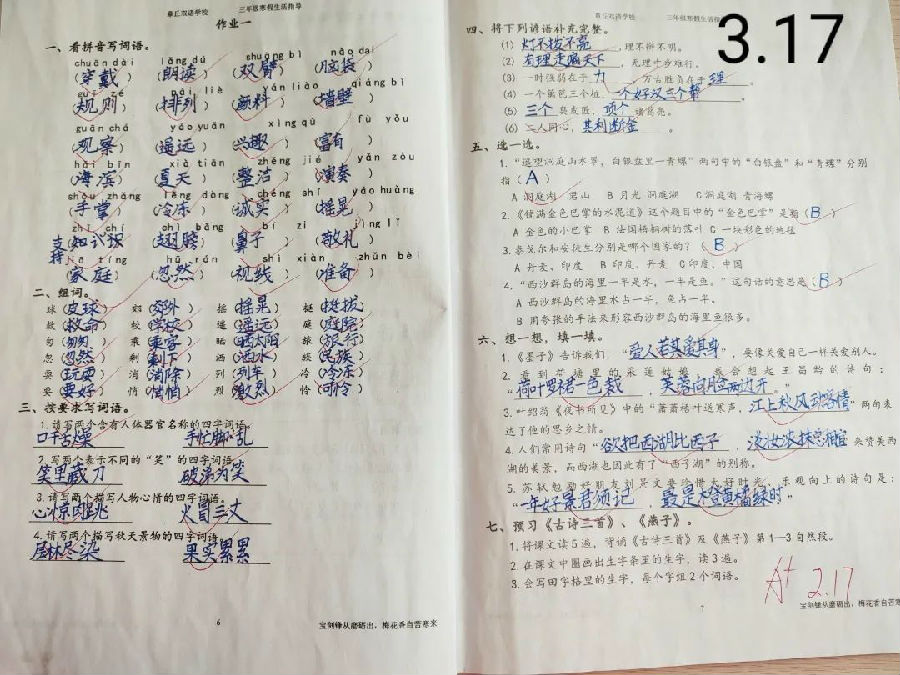 章丘双语学校 三年级寒假生活指导
作业一
一、看拼音写词语。
chuān dài lǎng dú shuāng bì nǎo dai
(穿戴) (朗读) (双臂) (脑袋)
guī zé pái liè yán liào qiáng bì
(规则) (排列) (颜料) (墙壁)
guān chá yáo yuǎn xìng qù fù yǒu
(观察) (遥远) (兴趣) (富有)
hǎi bīn xià tiān zhěng jié yǎn zòu
(海滨) (夏天) (整洁) (演奏)
shǒu zhǎng lěng dòng chéng shí yáo huàng
(手掌) (冷冻) (诚实) (摇晃)
zhī chí chì bǎng bí zi jìng lǐ
支持 (知识) (翅膀) (鼻子) (敬礼)
jiā tíng hū rán shì xiàn zhǔn bèi
(家庭) (忽然) (视线) (准备)
二、组词。
球(皮球) 郊(郊外) 摇(摇晃) 挺(挺拔)
救(救命) 校(学校) 遥(遥远) 庭(庭院)
匆(匆匆) 乘(乘客) 晒(晒太阳) 旅(旅行)
忽(忽然) 剩(剩下) 洒(洒水) 族(民族)
玩(玩耍) 消(消除) 列(列车) 冷(冷冻)
要(要好) 悄(悄悄) 烈(激烈) 怜(可怜)
三、按要求写词语。
1.请写两个含有人体器官名称的四字词语。
口干舌燥 手忙脚乱
2.写两个表示不同的“笑”的四字词语。
笑里藏刀 破涕为笑
3.请写两个描写人物心情的四字词语。
心惊肉跳 火冒三丈
4.请写两个描写秋天景物的四字词语。
层林尽染 果实累累
6 宝剑锋从磨砺出，梅花香自苦寒来
章丘双语学校 三年级寒假生活指
3.17
四、将下列谚语补充完整。
(1) 灯不拨不亮，理不辩不明。
(2) 有理走遍天下，无理寸步难行。
(3) 一时强弱在于力，万古胜负在于理。
(4) 一个篱笆三个桩，一个好汉三个帮。
(5) 三个臭皮匠，顶个诸葛亮。
(6) 二人同心，其利断金。
五、选一选。
1.“遥望洞庭山水翠，白银盘里一青螺”两句中的“白银盘”和“青螺”分别
指(A)
A 洞庭湖 君山 B 月光 洞庭湖 C 洞庭湖 青海螺
2.《铺满金色巴掌的水泥道》这个题目中的“金色巴掌”是指(B)
A 金色的小巴掌 B 法国梧桐树的落叶 C 一块彩色的地毯
3.泰戈尔和安徒生分别是哪个国家的？(B)
A 丹麦、印度 B 印度、丹麦 C 印度、中国
4.“西沙群岛的海里一半是水，一半是鱼。”这句话的意思是(B)
A 西沙群岛的海里水占一半，鱼占一半。
B 用夸张的手法来形容西沙群岛的海里鱼很多。
六、想一想，填一填。
1.《墨子》告诉我们：“爱人若其爱其身”，要像关爱自己一样关爱别人。
2.看到荷塘里的采莲姑娘，我会想起王昌龄的诗句：
“荷叶罗裙一色裁，芙蓉向脸两边开。”
3.叶绍翁《夜书所见》中的“萧萧梧叶送寒声，江上秋风动客情”两句表
达了他的思乡之情。
4.人们常用诗句“欲把西湖比西子，淡妆浓抹总相宜”来赞美西
湖的美景，而西湖也因此有了“西子湖”的别称。
5.苏轼勉励好朋友刘景文要珍惜大好时光，乐观向上的诗句是：
“一年好景君须记，最是橙黄橘绿时”
七、预习《古诗三首》、《燕子》。
1.将课文读5遍，背诵《古诗三首》及《燕子》第1-3自然段。
2.在课文中圈画出生字条里的生字，读3遍。
3.会写田字格里的生字，每个字组2个词语。
A+ 2.17
7 宝剑锋从磨砺出，梅花香自苦寒